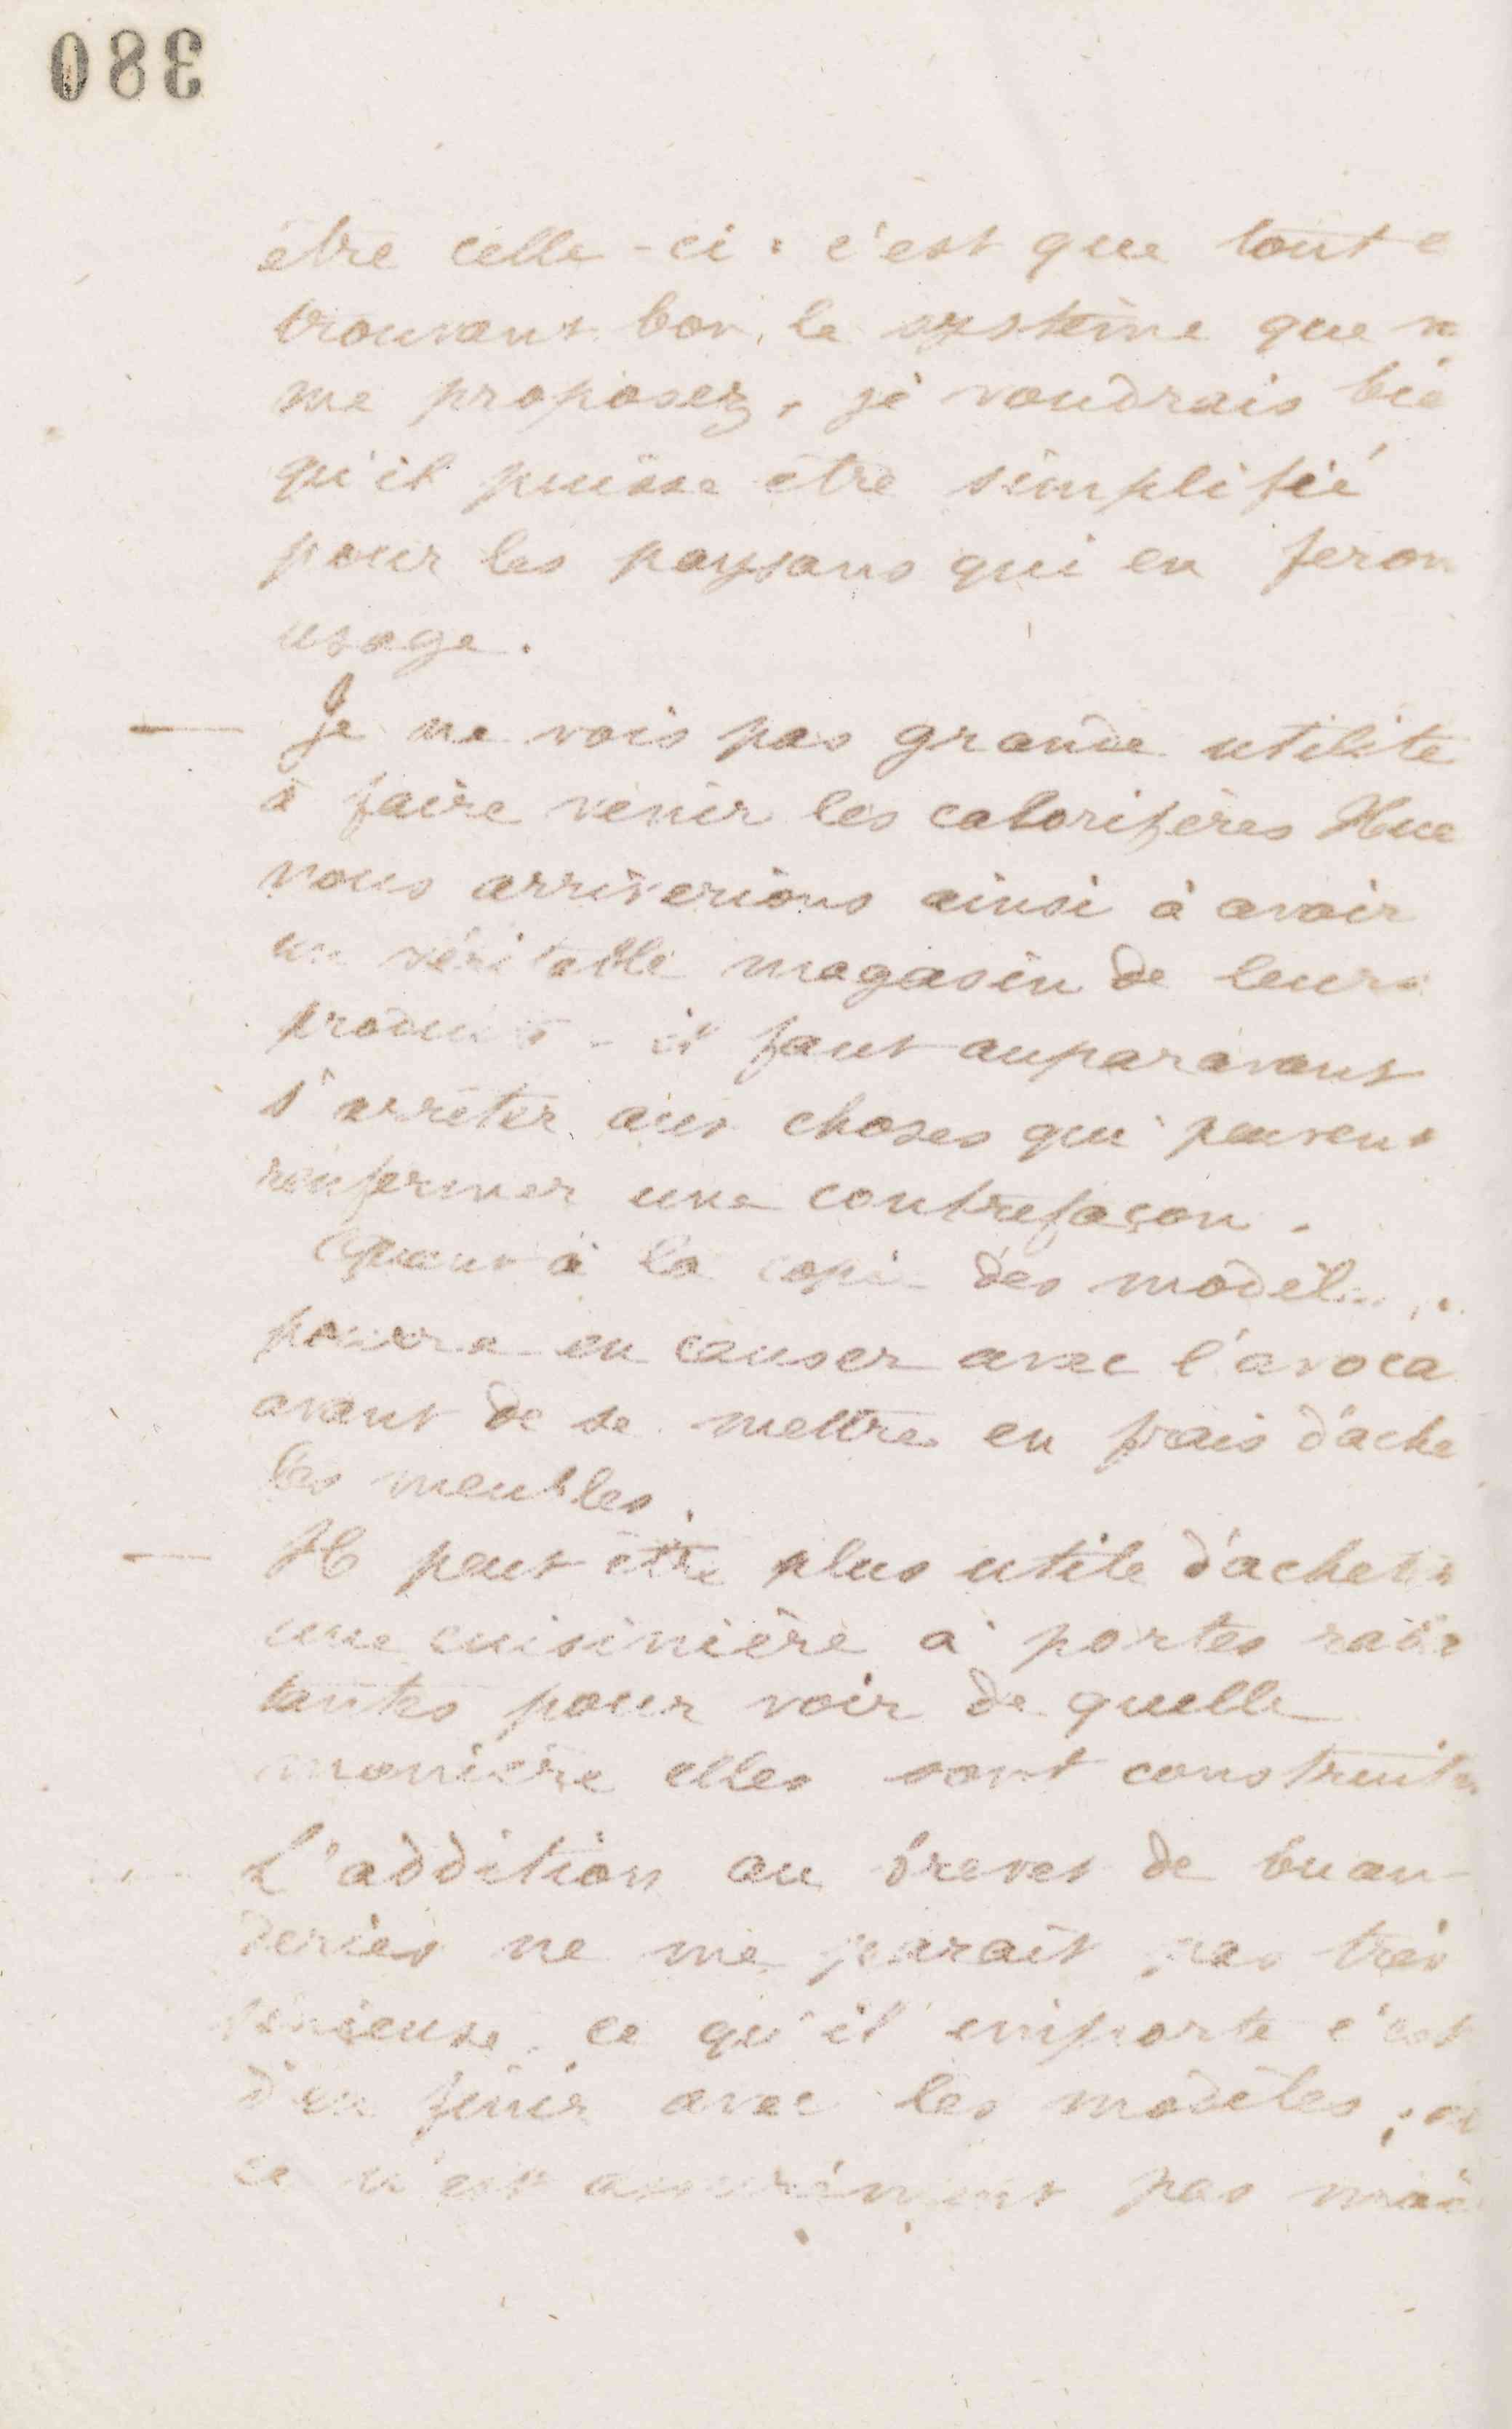 380
être celle-ci : c'est que tout e
trouvant bon, le système que v
me proposez, je voudrais bie
qu'il puisse être simplifié
pour les paysans qui en feron
usage.
— Je ne vois pas grande utilité
à faire venir les calorifères Hue
nous arriverions ainsi à avoir
un véritable magasin de leurs
produits - il faut auparavant
s'arrêter aux choses qui peuvent
renfermer une contrefaçon.
Quant à la copie des modèl
pourra en causer avec l'avoca
avant de se mettre en frais d'ache
les meubles.
— Il peut être plus utile d'acheter
une cuisinière à portes
pour voir de quelle
manière elles sont construites
L'addition au brevet de buan
deries ne me paraît pas très
sérieuse. ce qu'il importe c'est
d'en finir avec les modèles ;
ce n'est assurément pas